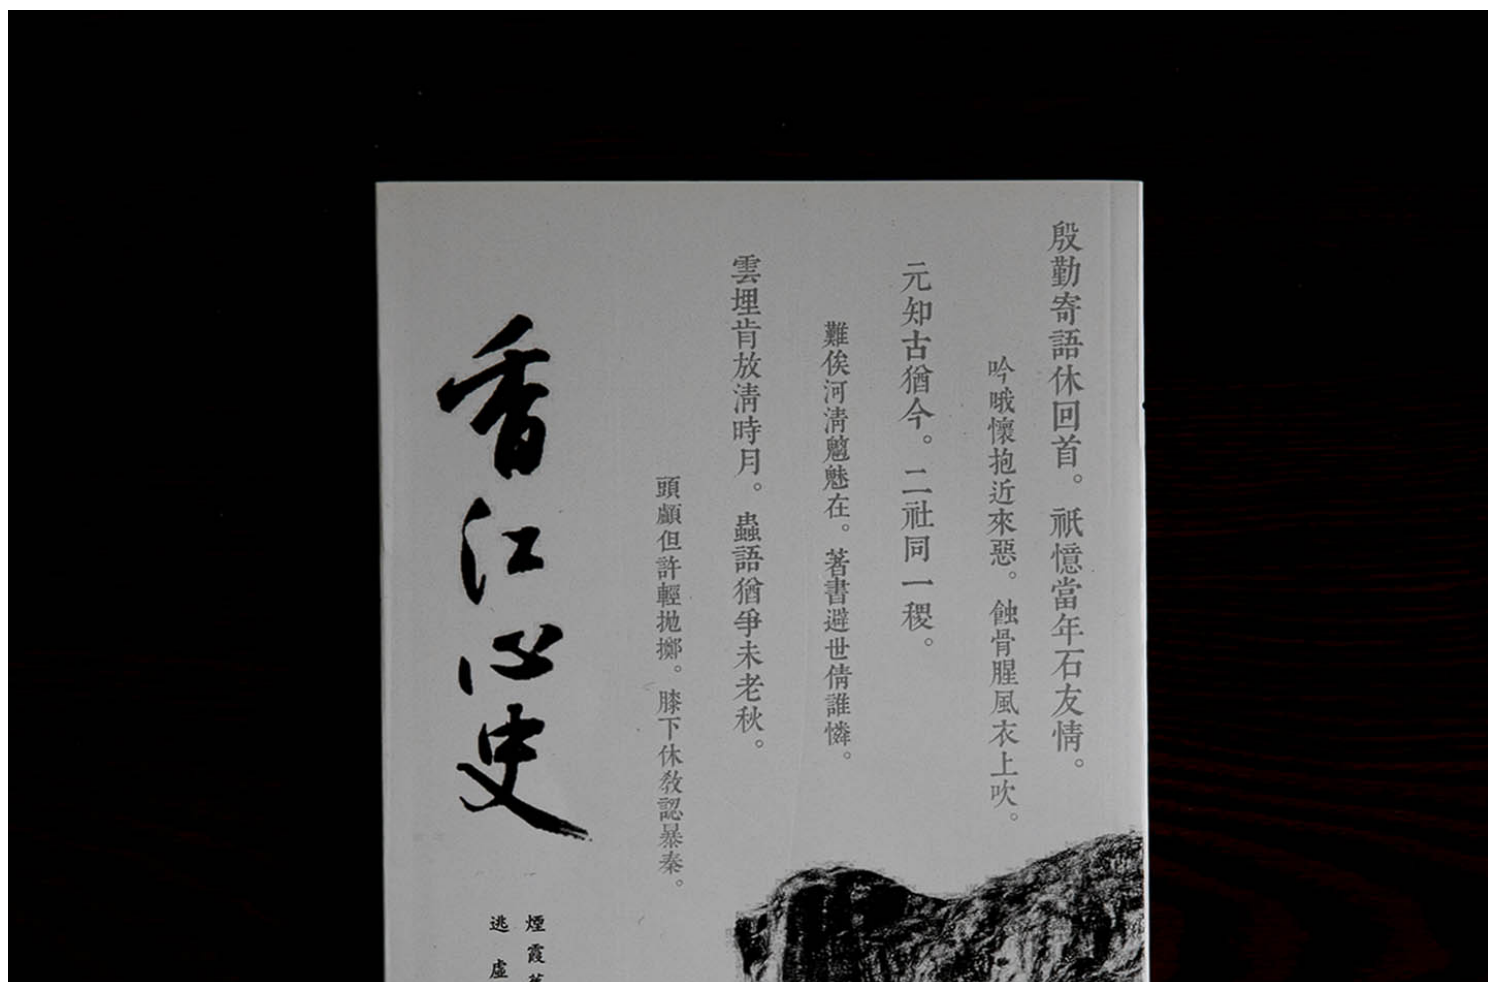 殷勤寄語休回首。祇憶當年石友情。
吟哦懷抱近來惡。蝕骨腥風衣上吹。
元知古猶今。二社同一稷。
難俟河淸魑魅在。著書避世倩誰憐。
雲埋肯放淸時月。蟲語猶爭未老秋。
頭顱但許輕拋擲。膝下休敎認暴秦。
香江心史
煙霞
逃虛